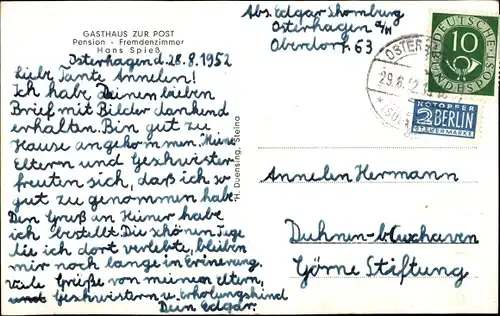 GASTHAUS ZUR POST
Pension - Fremdenzimmer
Hans Spieß
Osterhagen d. 28.8.1952
Liebe Tante Annelen!
Ich habe Deinen lieben
Brief mit Bilder dankend
erhalten. Bin gut zu
Hause angekommen. Meine
Eltern und Geshwister
freuten sich, daß ich so
gut zu genommen habe.
Den Gruß an Heiner habe
ich bestellt. Die schönen Tage
die ich dort verlebte, bleiben
mir noch lange in Erinerung.
Viele Grüße von meinen Eltern,
und Geshwistern u. Erholungskind
Dein Edgar.
H. Duensing, Steina
Abs. Edgar Shomburg
Osterhagen a/H
Oberdorf 63
DEUTSCHE BUNDESPOST
10
NOTOPFER
2 BERLIN
STEUERMARKE
Annelen Hermann
Duhnen-b/Cuxhaven
Görne Stiftung